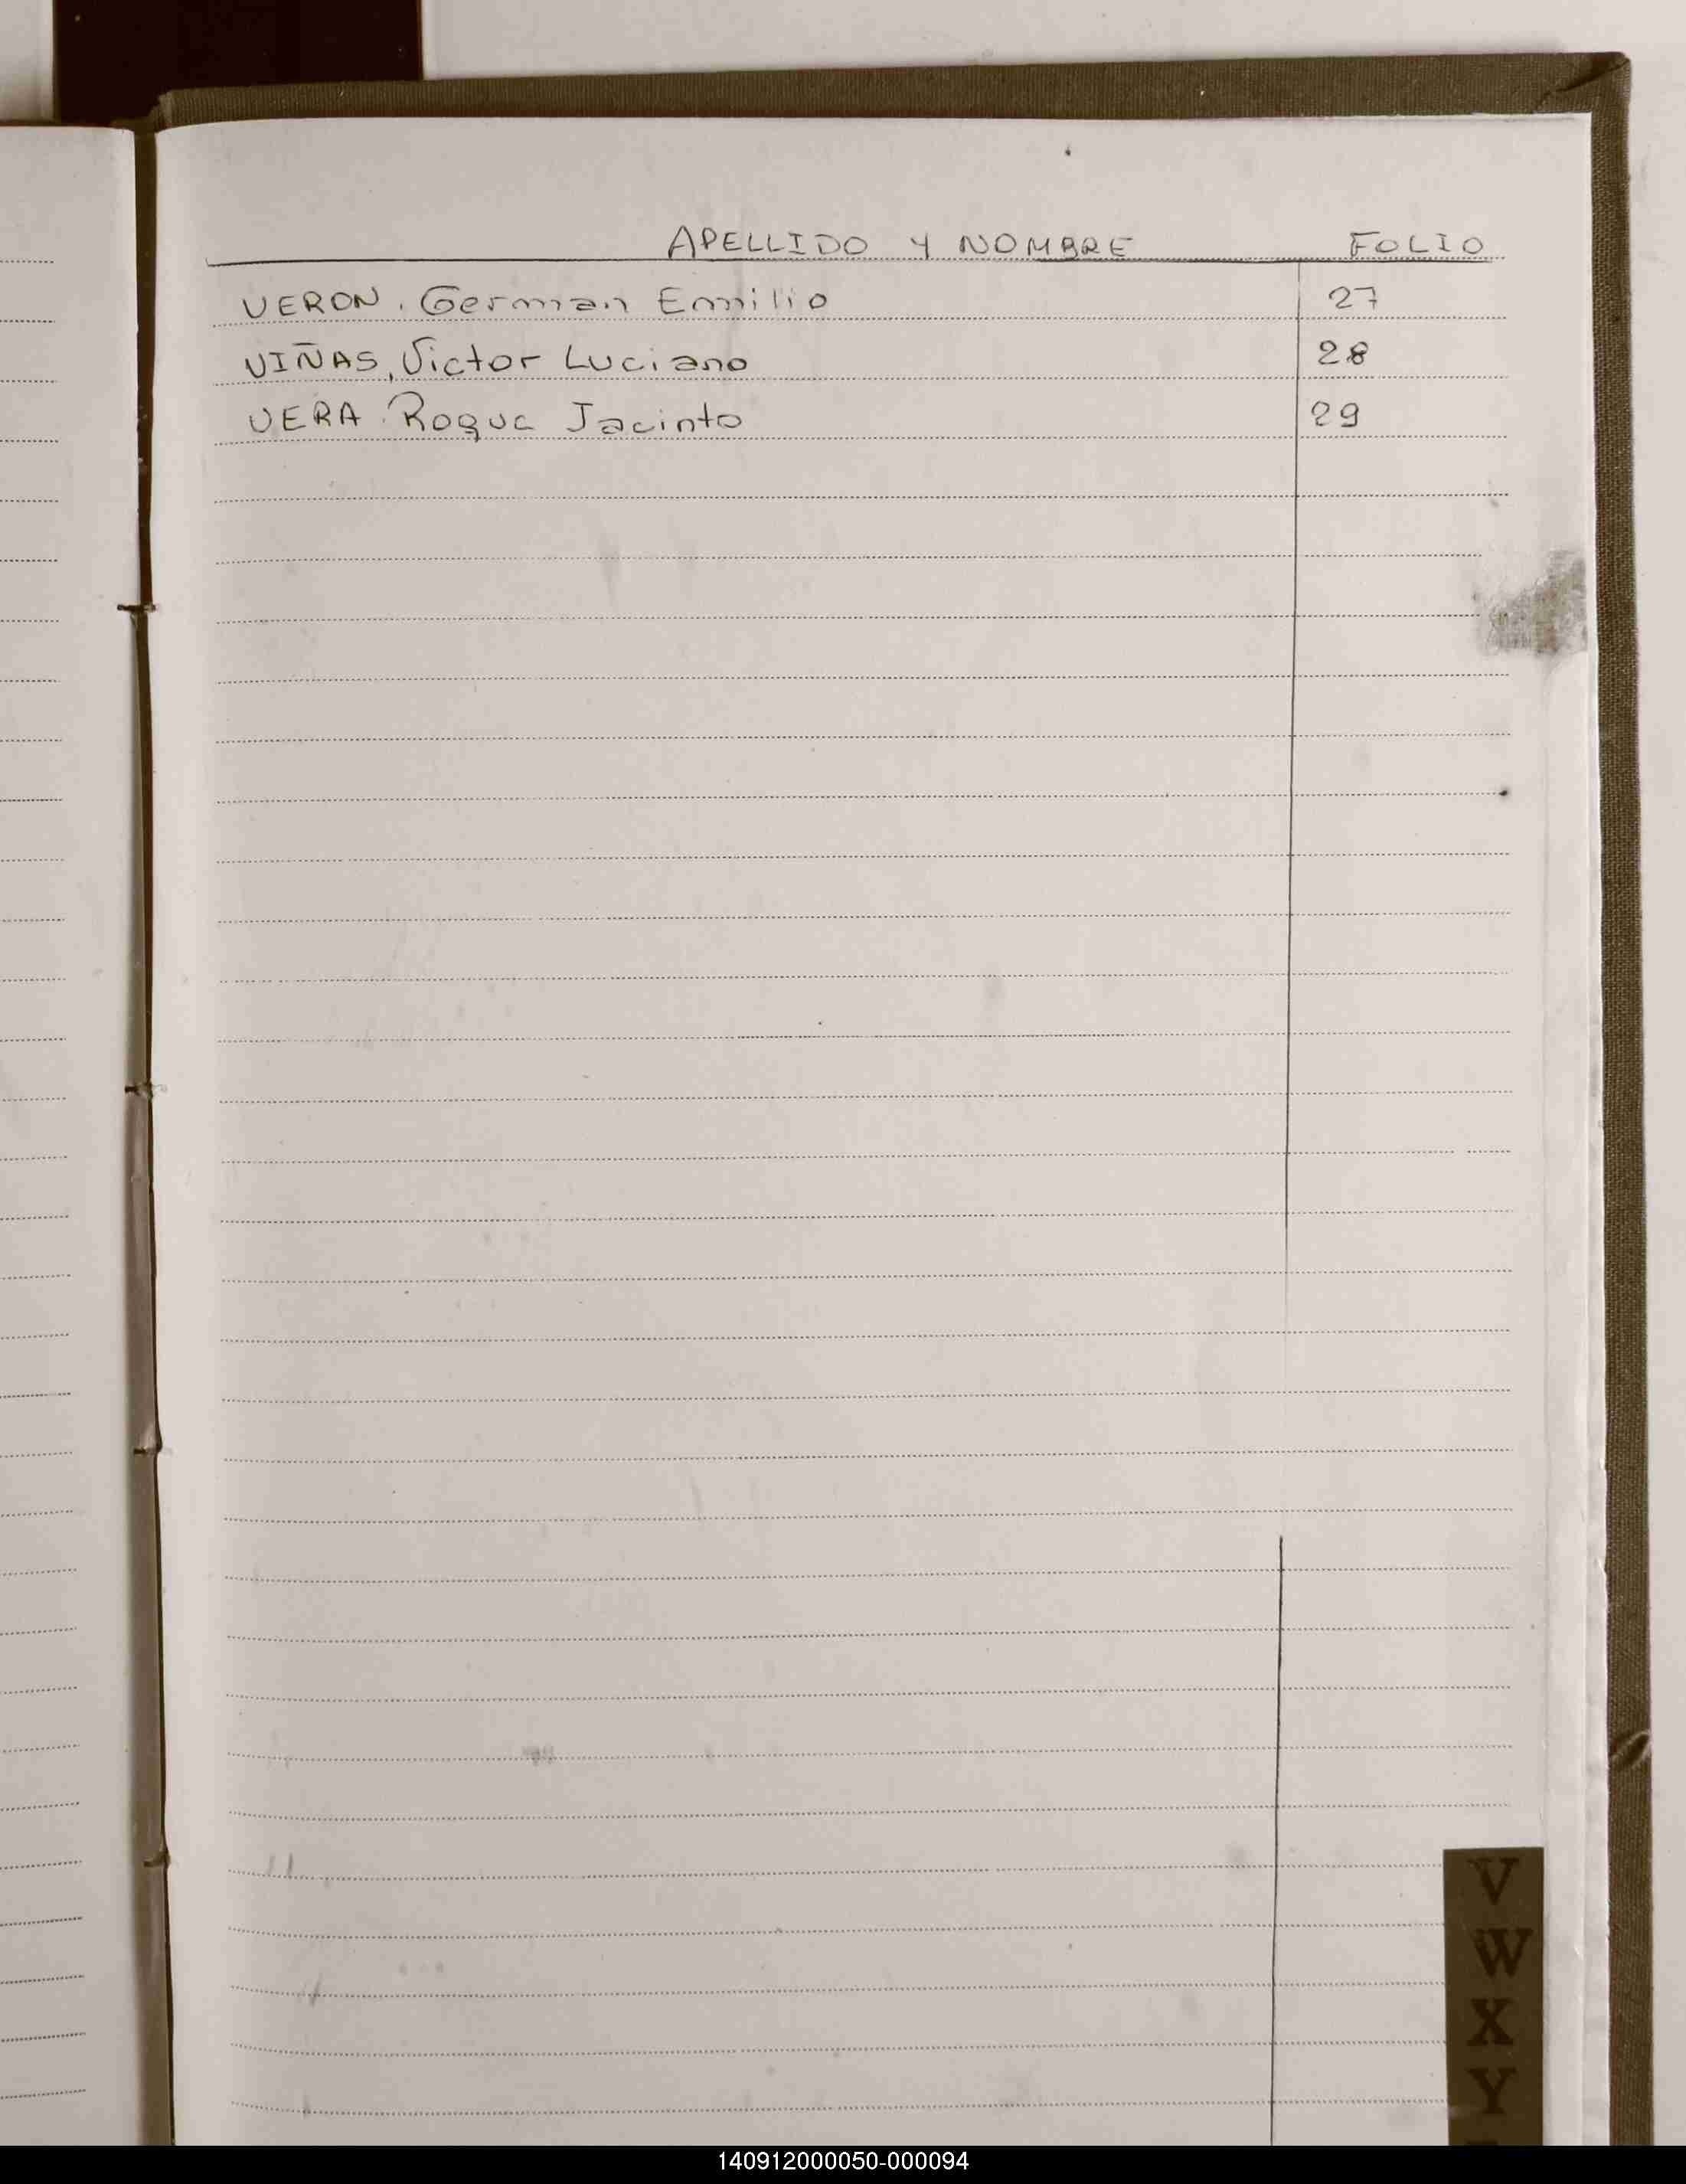 APELLIDO Y NOMBRE FOLIO
VERON. German Emilio 27
VIÑAS, Victor Luciano 28
VERA. Roque Jacinto 29
V
W
X
Y
140912000050-000094